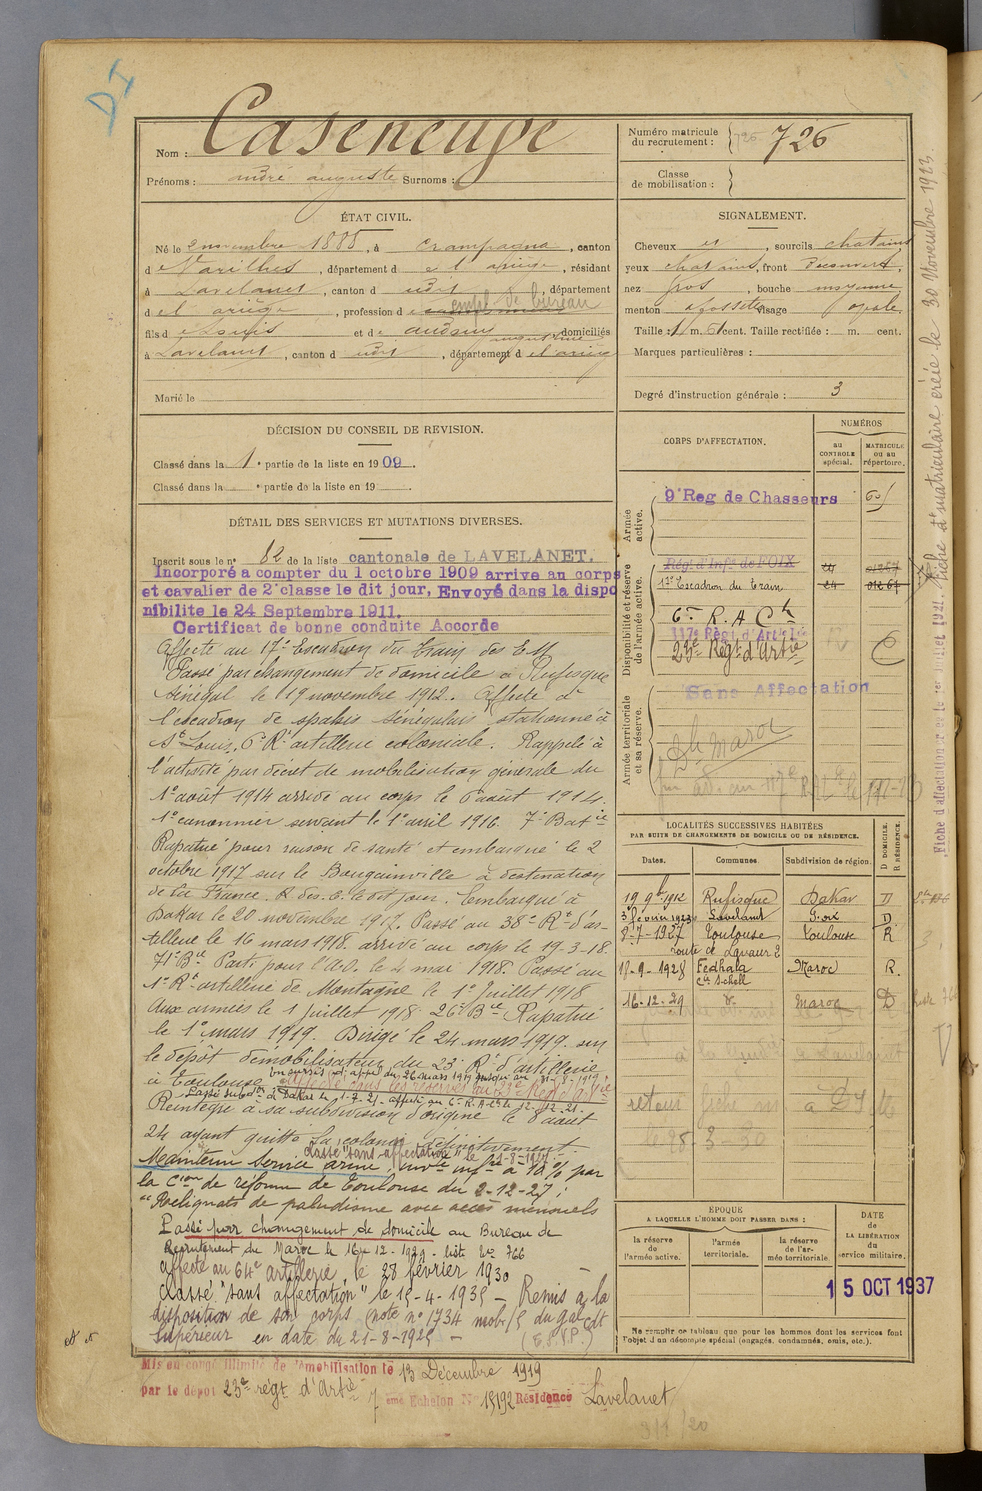 DI
Nom : Caseneuve
Prénoms : andré auguste Surnoms :
Numéro matricule du recrutement : 726 726
Classe de mobilisation :
ÉTAT CIVIL.
Né le 2 novembre 1888, à Crampagna, canton
d e Varilhes, département d e l'ariège, résidant
à Lavelanet, canton d udit, département
d e l'ariège, profession d empl. de bureau
fils d e Louis et de audouy augustine domiciliés
à Lavelanet, canton d udit, département d e l'ariège
Marié le
SIGNALEMENT.
Cheveux et, sourcils chatains
yeux chatains, front découvert,
nez gros, bouche moyenne
menton à fossette visage ovale.
Taille : 1 m. 61 cent. Taille rectifiée : m. cent.
Marques particulières :
Degré d'instruction générale : 3
DÉCISION DU CONSEIL DE REVISION.
Classé dans la 1e partie de la liste en 1909.
Classé dans la e partie de la liste en 19 .
DÉTAIL DES SERVICES ET MUTATIONS DIVERSES.
Inscrit sous le n° 82 de la liste cantonale de LAVELANET.
Incorporé a compter du 1 octobre 1909 arrive au corps
et cavalier de 2e classe le dit jour, Envoyé dans la dispo
nibilite le 24 Septembre 1911.
Certificat de bonne conduite Accorde
Affecté au 17e Escadron du Train des EM
Passé par changement de domicile à Rufisque
Sénégal le 19 novembre 1912. Affecté à
l'escadron de spahis sénégalais stationné à
St Louis, 6e Rt artillerie coloniale. Rappelé à
l'activité par décret de mobilisation générale du
1er août 1914 arrivé au corps le 6 août 1914.
1er canonnier servant le 1er avril 1916. 7e Batie
Rapatrié pour raison de santé et embarqué le 2
octobre 1917 sur le Bougainville à destination
de la France. R des C. le dit jour. Embarqué à
Dakar le 20 novembre 1917. Passé au 38e Rt d'ar-
tillerie le 16 mars 1918. arrivé au corps le 19-3-18.
71e Bie Parti pour l'A.O. le 4 mai 1918. Passé au
1er Rt artillerie de Montagne le 1er Juillet 1918
Aux armées le 1 Juillet 1918. 26e Bie Rapatrié
le 1er mars 1919. Dirigé le 24 mars 1919. sur
le dépôt démobilisateur du 23e Rt d'artillerie
à Toulouse
affecté dans les réserves au 23e Régt d'Artie
Passé subdon de Dakar le 1-7-21. affecté au 6e R.A.Cle le 12-12-21.
Réintégré à sa subdivision d'origine le 8 août
24 ayant quitté la colonie définitivement.
Classé "sans affectation" le 1-8-1927.
Maintenu Service armé, invté infre à 10% par
la Cion de réforme de Toulouse du 2-12-27 ;
"Reliquats de paludisme avec accès mensuels
Passé par changement de domicile au Bureau de
Recrutement du Maroc le 16-12-1929. liste No 766
affecté au 64e artillerie, le 28 février 1930
classé "sans affectation" le 15-4-1935 - Remis à la
disposition de son corps (note n° 1734 mob/S du Gal Cdt
Supérieur en date du 21-8-1925 -
Mis en congé illimité de démobilisation le 13 Décembre 1919
par le dépôt 23e régt d'Artie
7 eme Echelon N° 15192 Résidence Lavelanet
CORPS D'AFFECTATION.
NUMÉROS
au CONTROLE spécial.
MATRICULE ou au répertoire.
Armée active.
9e Reg de Chasseurs
Disponibilité et réserve de l'armée active.
Rég. d'Infie de FOIX
17e Escadron du Train
6me R. A Ch
117e Régt d'Artle
23me Régt d'Artie
Armée territoriale et sa réserve.
Sans Affectation
Dle Maroc
LOCALITÉS SUCCESSIVES HABITÉES
PAR SUITE DE CHANGEMENTS DE DOMICILE OU DE RÉSIDENCE.
Dates. Communes. Subdivision de région. D DOMICILE. R RÉSIDENCE.
19 9bre 1912 Rufisque Dakar D
3 février 1923 Lavelanet Foix D
8-7-1927 Toulouse Toulouse R
route de Lavaur 2
18-9-1928 Fedhala Maroc R.
Cie Schell
16-12-29 do Maroc D
ÉPOQUE
A LAQUELLE L'HOMME DOIT PASSER DANS :
la réserve de l'armée active.
l'armée territoriale.
la réserve de l'armée territoriale.
DATE de LA LIBÉRATION du service militaire.
15 OCT 1937
Ne remplir ce tableau que pour les hommes dont les services font l'objet d'un décompte spécial (engagés, condamnés, omis, etc.).
Fiche matriculaire créée le 30 Novembre 1923.